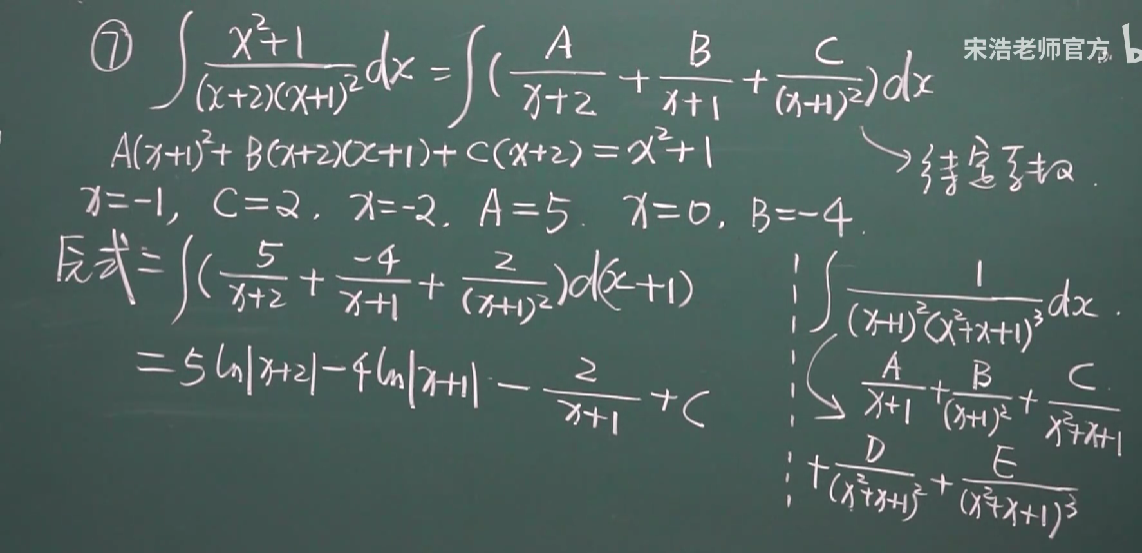 宋浩老师官方 b
⑦ ∫ (x²+1)/((x+2)(x+1)²) dx = ∫( A/(x+2) + B/(x+1) + C/(x+1)² )dx
A(x+1)² + B(x+2)(x+1) + C(x+2) = x²+1
待定系数.
x=-1, C=2. x=-2. A=5. x=0. B=-4.
原式 = ∫( 5/(x+2) + -4/(x+1) + 2/(x+1)² )d(x+1)
= 5 ln|x+2| - 4 ln|x+1| - 2/(x+1) + C
∫ 1/((x+1)²(x²+x+1)³) dx.
A/(x+1) + B/(x+1)² + C/(x²+x+1)
+ D/(x²+x+1)² + E/(x²+x+1)³